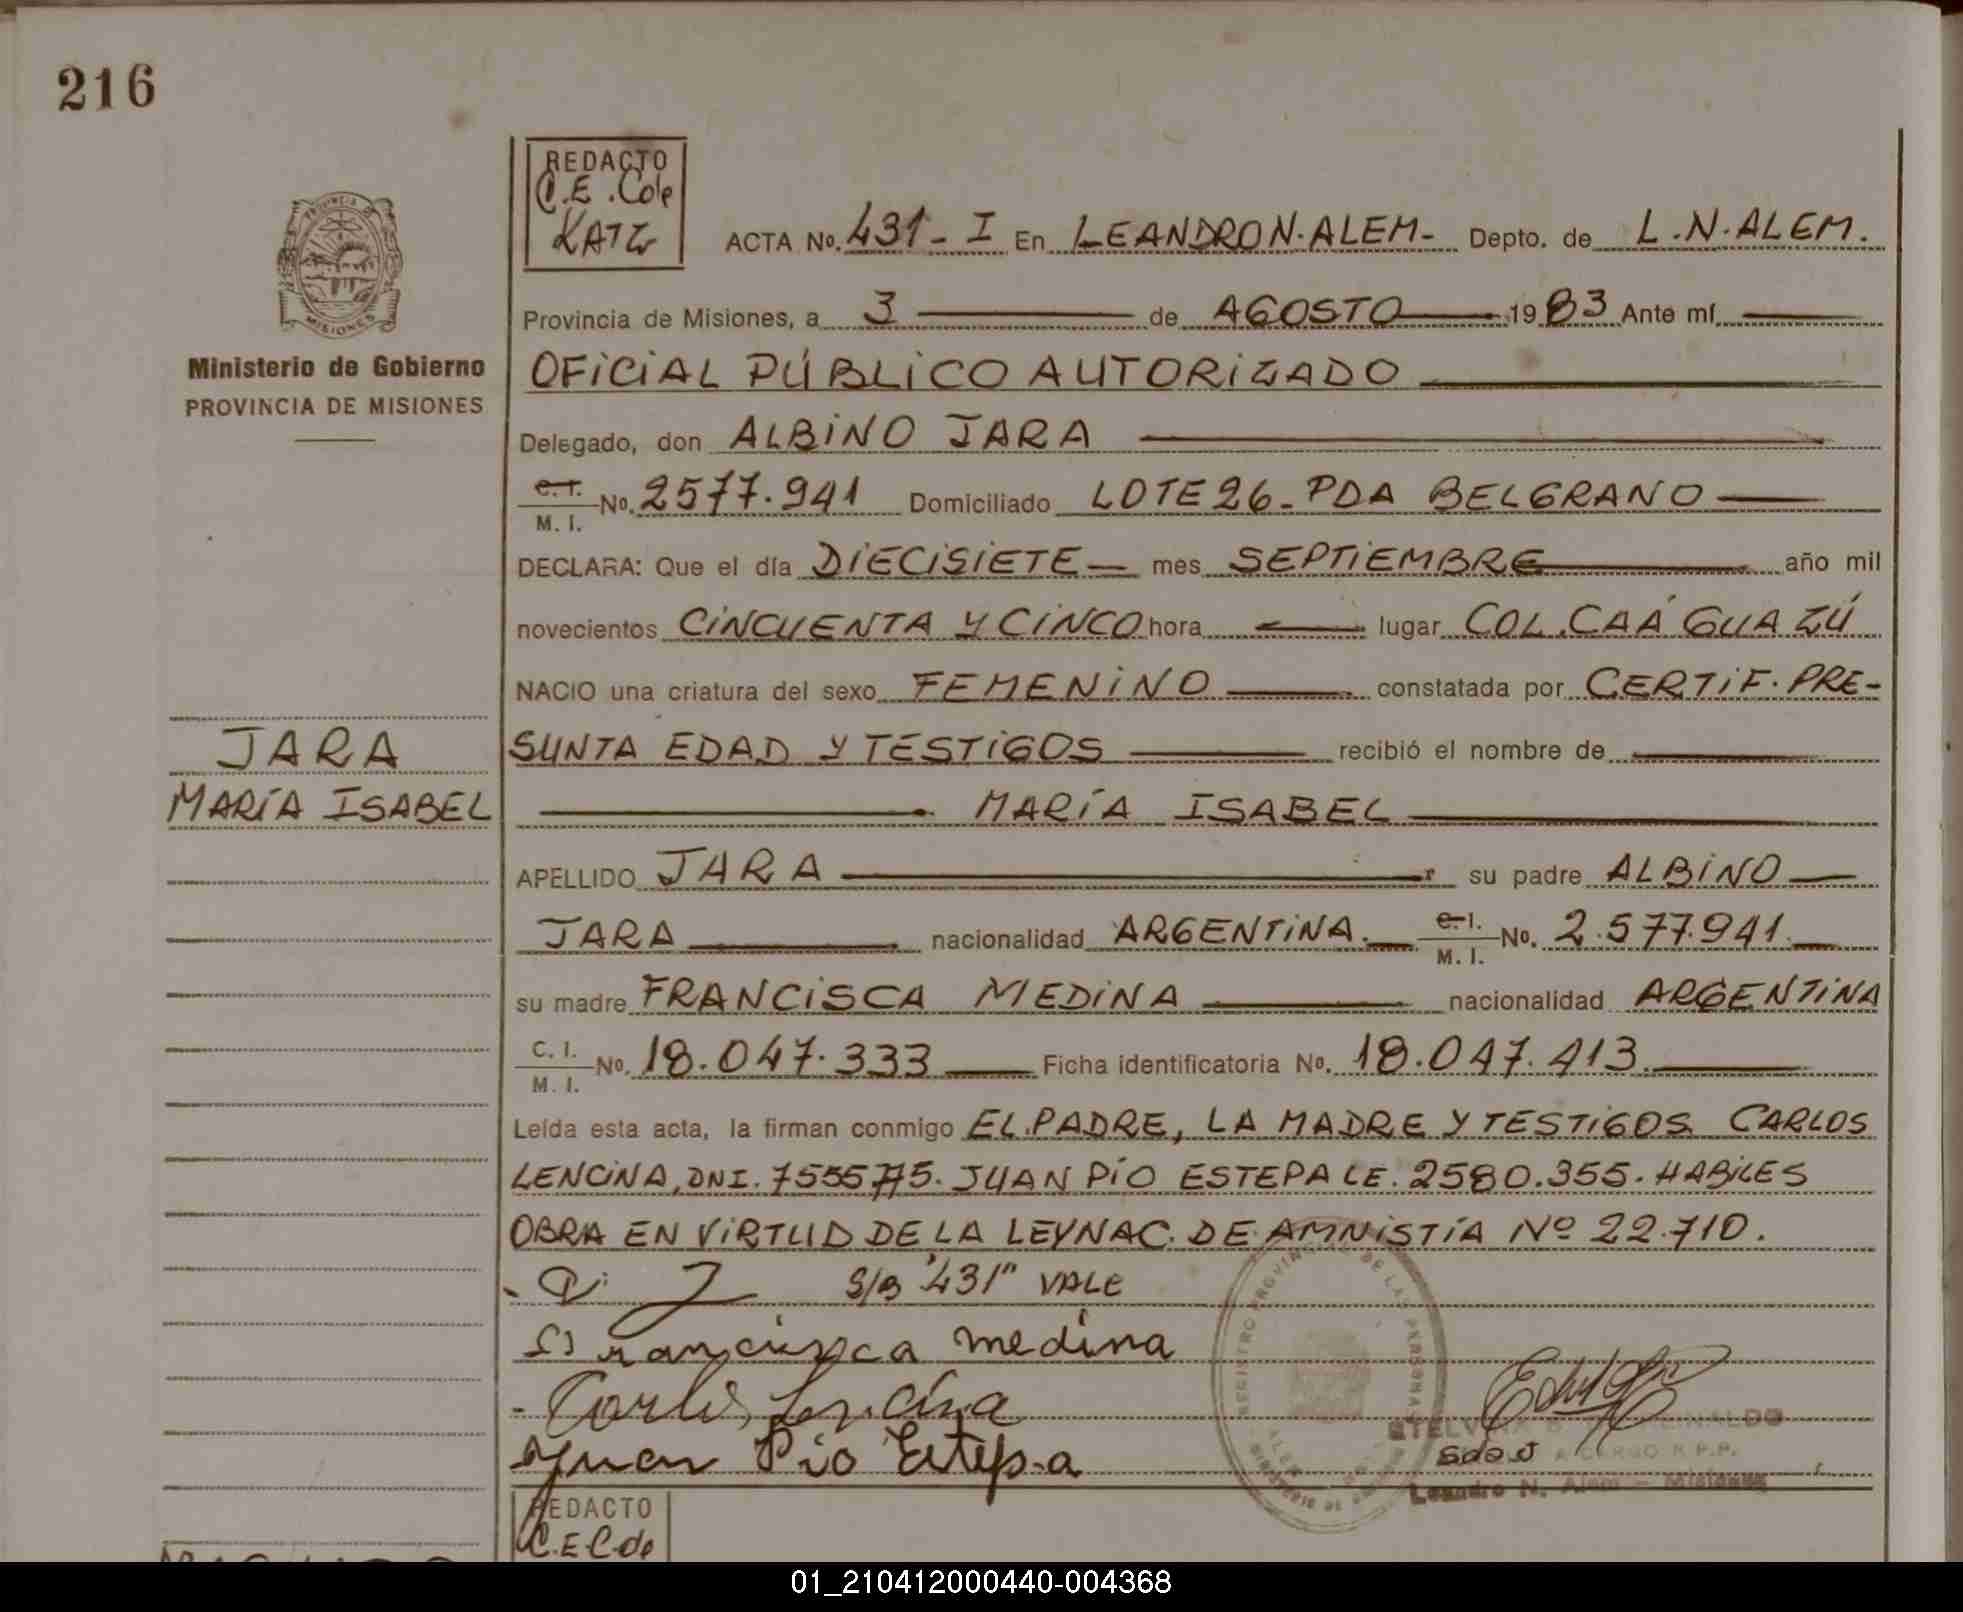 216
REDACTO
C.E. Cole
KATZ
ACTA No. 431 - I En LEANDRO N. ALEM- Depto. de L.N. ALEM.
PROVINCIA DE
MISIONES
Provincia de Misiones, a 3 de AGOSTO 1983 Ante mí
Ministerio de Gobierno
PROVINCIA DE MISIONES
OFICIAL PÚBLICO AUTORIZADO
Delegado, don ALBINO JARA
C. I. / M. I. No. 2577.941 Domiciliado LOTE 26 - PDA BELGRANO
DECLARA: Que el día DIECISIETE mes SEPTIEMBRE año mil
novecientos CINCUENTA Y CINCO hora lugar COL. CAÁ GUAZÚ
NACIO una criatura del sexo FEMENINO constatada por CERTIF. PRE-
SUNTA EDAD Y TESTIGOS recibió el nombre de
JARA
MARÍA ISABEL
MARÍA ISABEL
APELLIDO JARA su padre ALBINO
JARA nacionalidad ARGENTINA. C. I. / M. I. No. 2.577.941
su madre FRANCISCA MEDINA nacionalidad ARGENTINA
C. I. / M. I. No. 18.047.333 Ficha identificatoria No. 18.047.413.
Leída esta acta, la firman conmigo EL PADRE, LA MADRE Y TESTIGOS CARLOS
LENCINA, DNI. 7555775. JUAN PÍO ESTEPA LE. 2580.355. HABILES
OBRA EN VIRTUD DE LA LEY NAC. DE AMNISTÍA Nº 22.710.
S/B "431" VALE
Francisca medina
Carlos Lencina
Juan Pio Estepa
REGISTRO PROVINCIAL DE LAS PERSONAS
A CARGO R.P.P.
Leandro N. Alem - Misiones
REDACTO
C.E. Cole
01_210412000440-004368